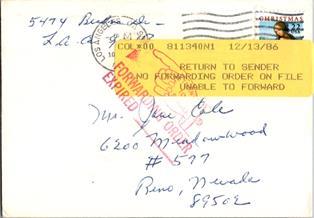 5474
L.A. Ca
LOS ANGELES
CHRISTMAS
22
COL*00 811340N1 12/13/86
RETURN TO SENDER
NO FORWARDING ORDER ON FILE
UNABLE TO FORWARD
FORWARDING ORDER
EXPIRED
Mrs. Jane Cole
6200 Meadowwood
# 577
Reno, Nevada
89502